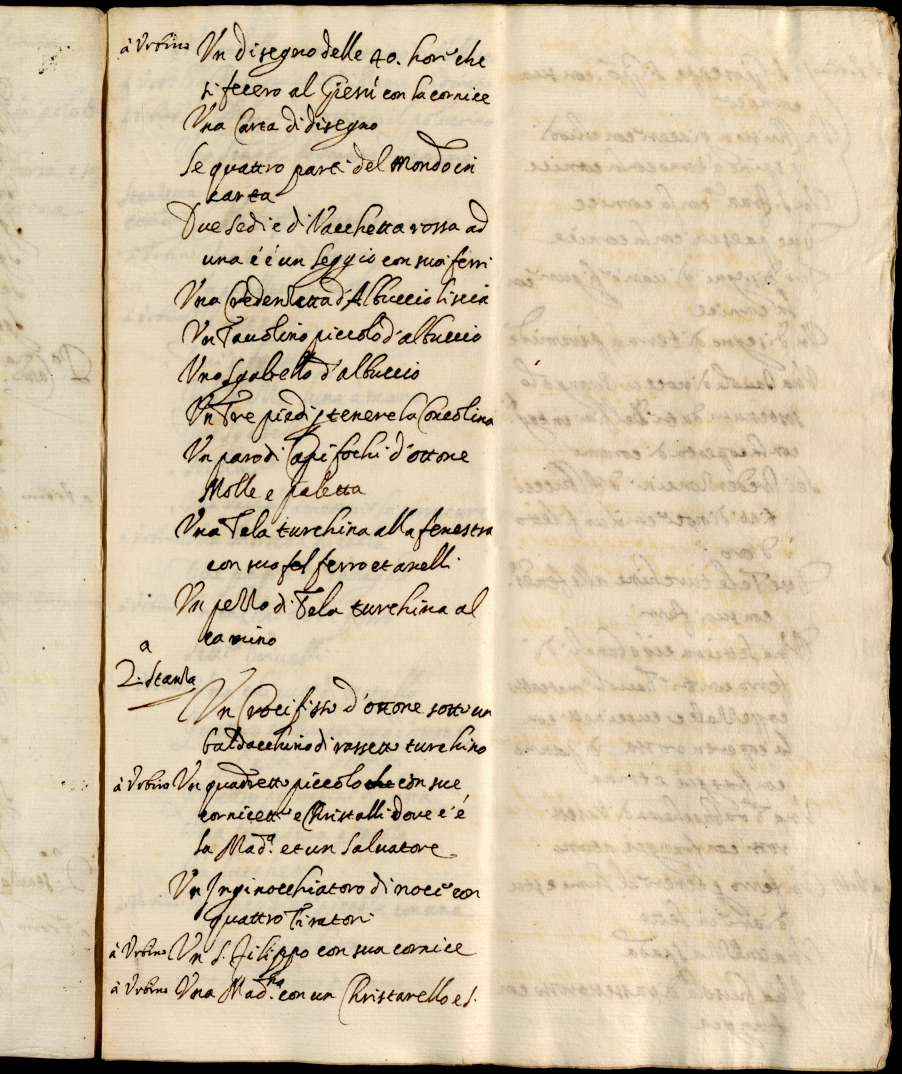 à Urbino Un disegno delle 40. hore che
si fecero al Giesù con la cornice
Una Carta di disegno
Le quattro parti del Mondo in
carta
Due sedie di Vacchetta rossa ad
una c'è un seggio con suoi ferri
Una Credenzetta d'Albuccio liscia
Un Tavolino piccolo d'albuccio
Uno sgabello d'albuccio
Un Tre piedi p tenere la Concolina
Un paro di Capifochi d'ottone
Molle e paletta
Una Tela turchina alla fenestra
con suo fel ferro et anelli
Un pezzo di Tela turchina al
camino
2.a Stanza
Un Crocifisso d'ottone sotto un
baldacchino di rassetto turchino
à Urbino Un quadretto piccolo che con sue
cornicette e Christalli dove c'é
la Mad.a et un Salvatore
Un Inginocchiatoro di noce con
quattro Tiratori
à Urbino Un S. Filippo con sua cornice
à Urbino Una Mad.na con un Christarello e S.